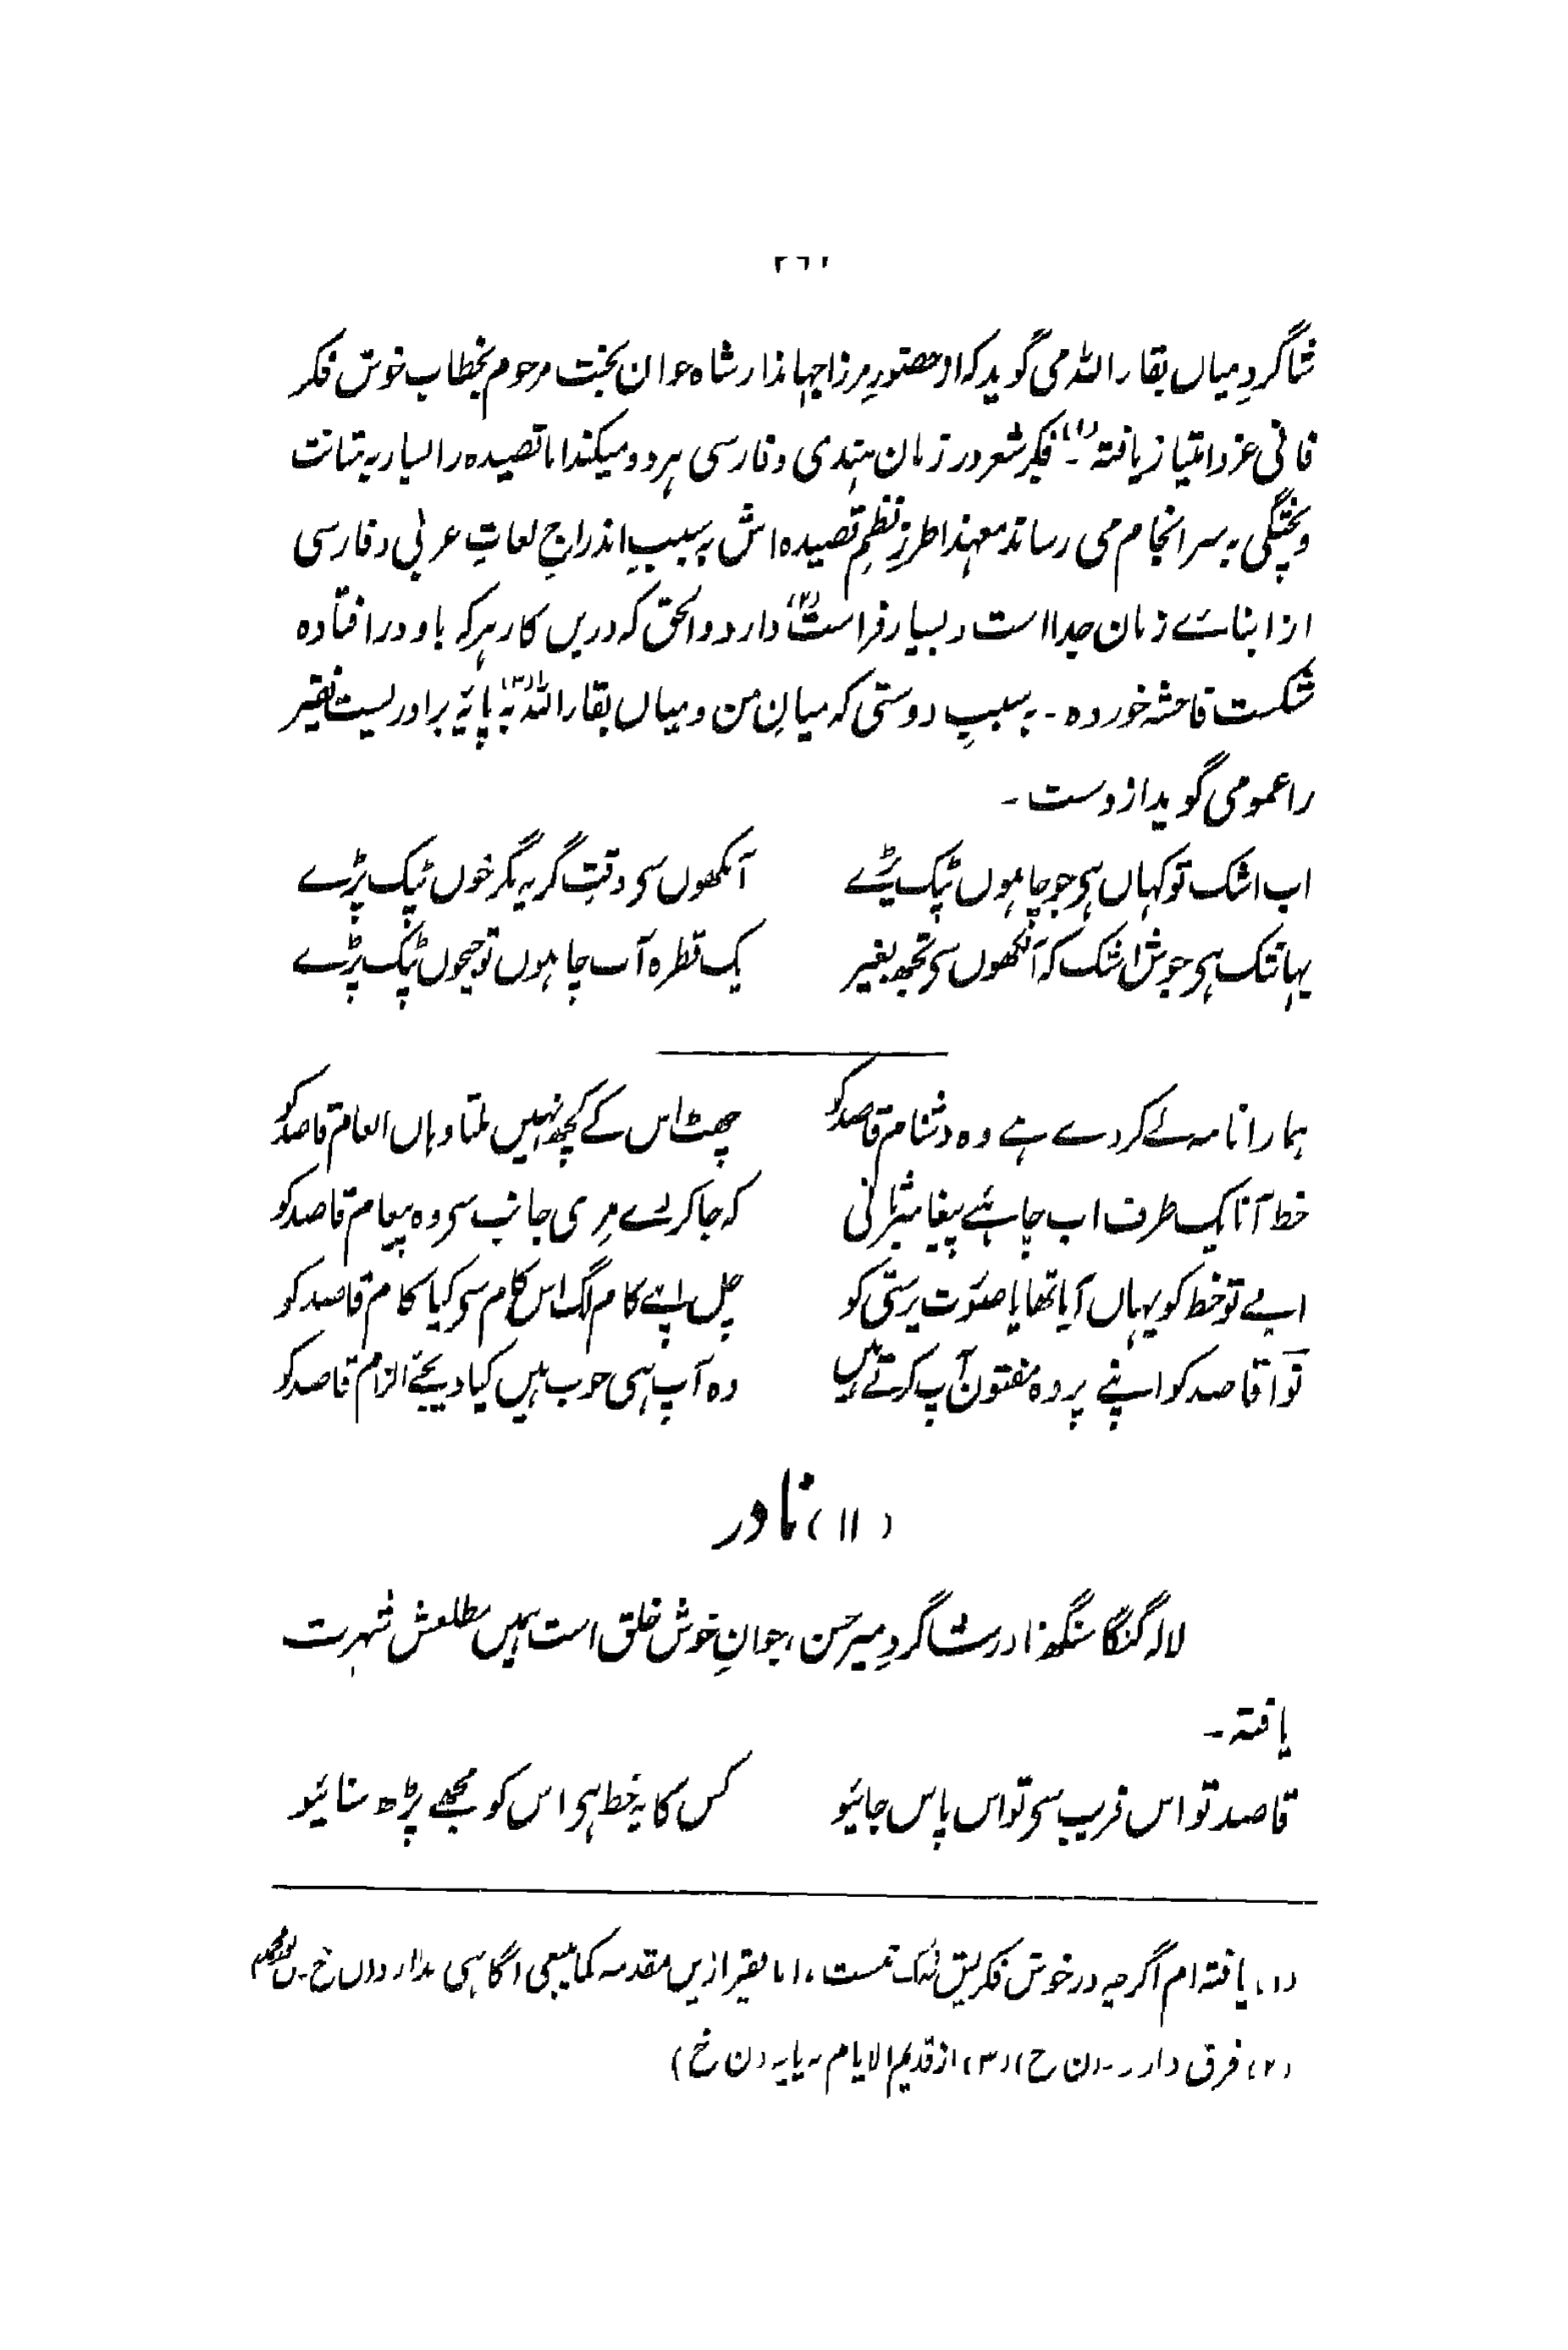 ۲۶۱
شاگردِ میاں بقاراللہ می گوید کہ از حضورِ مرزا جہاندار شاہ جوان بخت مرحوم بخطاب خوش فکر
خانی عز و امتیاز یافتہ (۱)۔ فکرِ شعر در زبان ہندی و فارسی ہر دو میکند اما قصیدہ را بسیار بہ متانت
و پختگی بہ سرانجام می رساند معہذا طرزِ نظمِ قصیدہ اش بہ سببِ اندراجِ لغاتِ عربی و فارسی
از ابنائے زمان جدا است و بسیار فراست (۲) دارد و الحق کہ دریں کار ہر کہ با و در افتادہ
شکست فاحشہ خوردہ۔ بہ سببِ دوستی کہ میانِ من و میاں بقاراللہ (۳) بہ پایۂ برادریست فقیر
را عمو می گوید از وست۔
اب اشک تو کہاں ہی جو چاہوں ٹپک پڑے آنکھوں سی وقتِ گریہ مگر خوں ٹپک پڑے
یہانتک ہی جوش اشک کہ آنکھوں سی تجھ بغیر یک قطرہ آب چاہوں تو جیحوں ٹپک پڑے
ہمارا نامہ لے کر دے ہے وہ دشنام قاصد کو چھٹ اس کے کچھ نہیں ملتا وہاں انعام قاصد کو
خط آنا یک طرف اب چاہئے پیغامبر ثانی کہ جا کر لے مری جانب سی وہ پیغام قاصد کو
ابے تو خط کو یہاں آیا تھا یا صورت پرستی کو چل اپنے کام لگ اس کام سی کیا کام قاصد کو
نوا قاصد کو اپنے پر وہ مفتون آپ کرتے ہیں وہ آپ ہی خوب ہیں کیا دیجئے الزام قاصد کو
(۱۱) نادر
لالہ گنگا سنگھ نادر شاگردِ میر حسن، جوانِ خوش خلق است ہمیں مطلعش شہرت
یافتہ۔
قاصد تو اس فریب سی تو اس پاس جائیو کس کا یہ خط ہی اس کو مجھے پڑھ سنائیو
(۱) یافتہ ام اگرچہ در خوش فکریش شک نیست، اما فقیر ازیں مقدمہ کما ینبغی آگاہی ندارد (ن خ)۔
(۲) فرق دارد۔ (ن خ) (۳) از قدیم الایام بہ پایہ (ن خ)